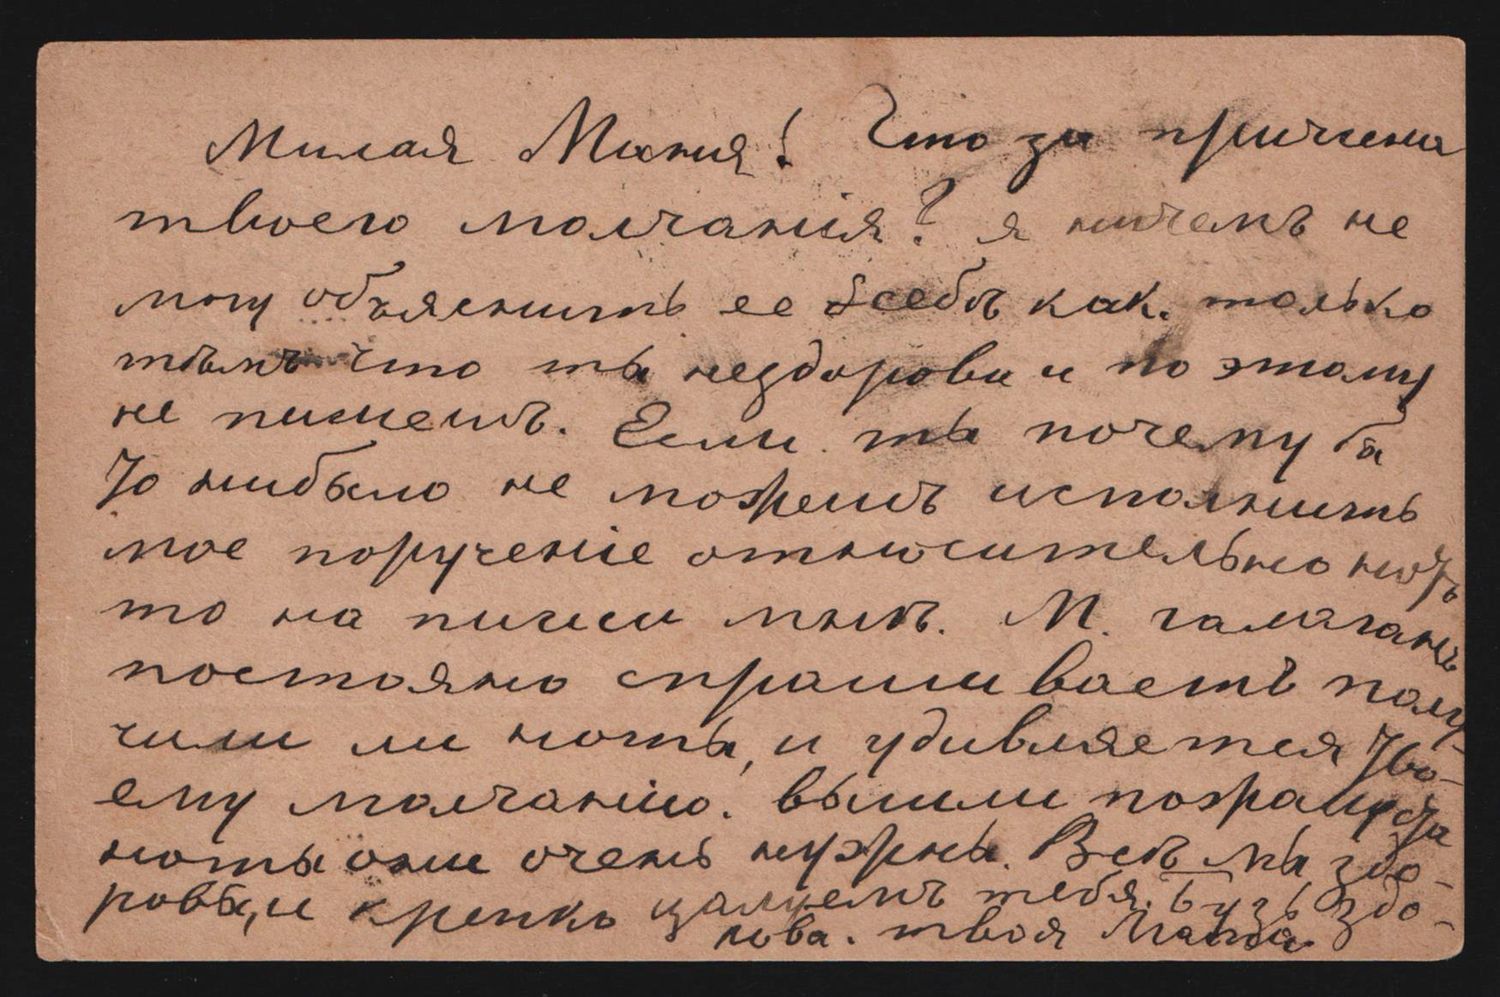 Милая Маня! Что за причена
твоего молчанія? я ничемъ не
могу объяснить ее себѣ как. только
тѣмъ что ты нездорова и по этому
не пишешъ. Если ты почему бы
то нибыло не можешъ исполнить
мое порученіе относительно нотъ
то на пиши мнѣ. М. Галаганъ
постояно спрашиваетъ полу-
чили ли ноты, и удивляется тво-
ему молчанію. вышли пожалуста
ноты они очень нужны. Всѣ мы здо-
ровы, и крепко цалуемъ тебя. Будь здо-
рова. твоя